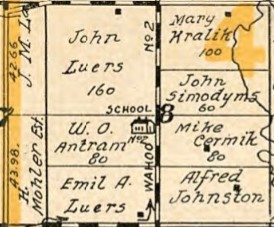 42.66
J. M. La
John
Luers
160
No 2
Mary
Kralik
100
John
Simodyms
60
SCHOOL
7
8
W. O.
Antram
80
No 2
Mike
Cermik
80
43.98
H.
Mohler Est.
Emil A.
Luers
WAHOO
Alfred
Johnston